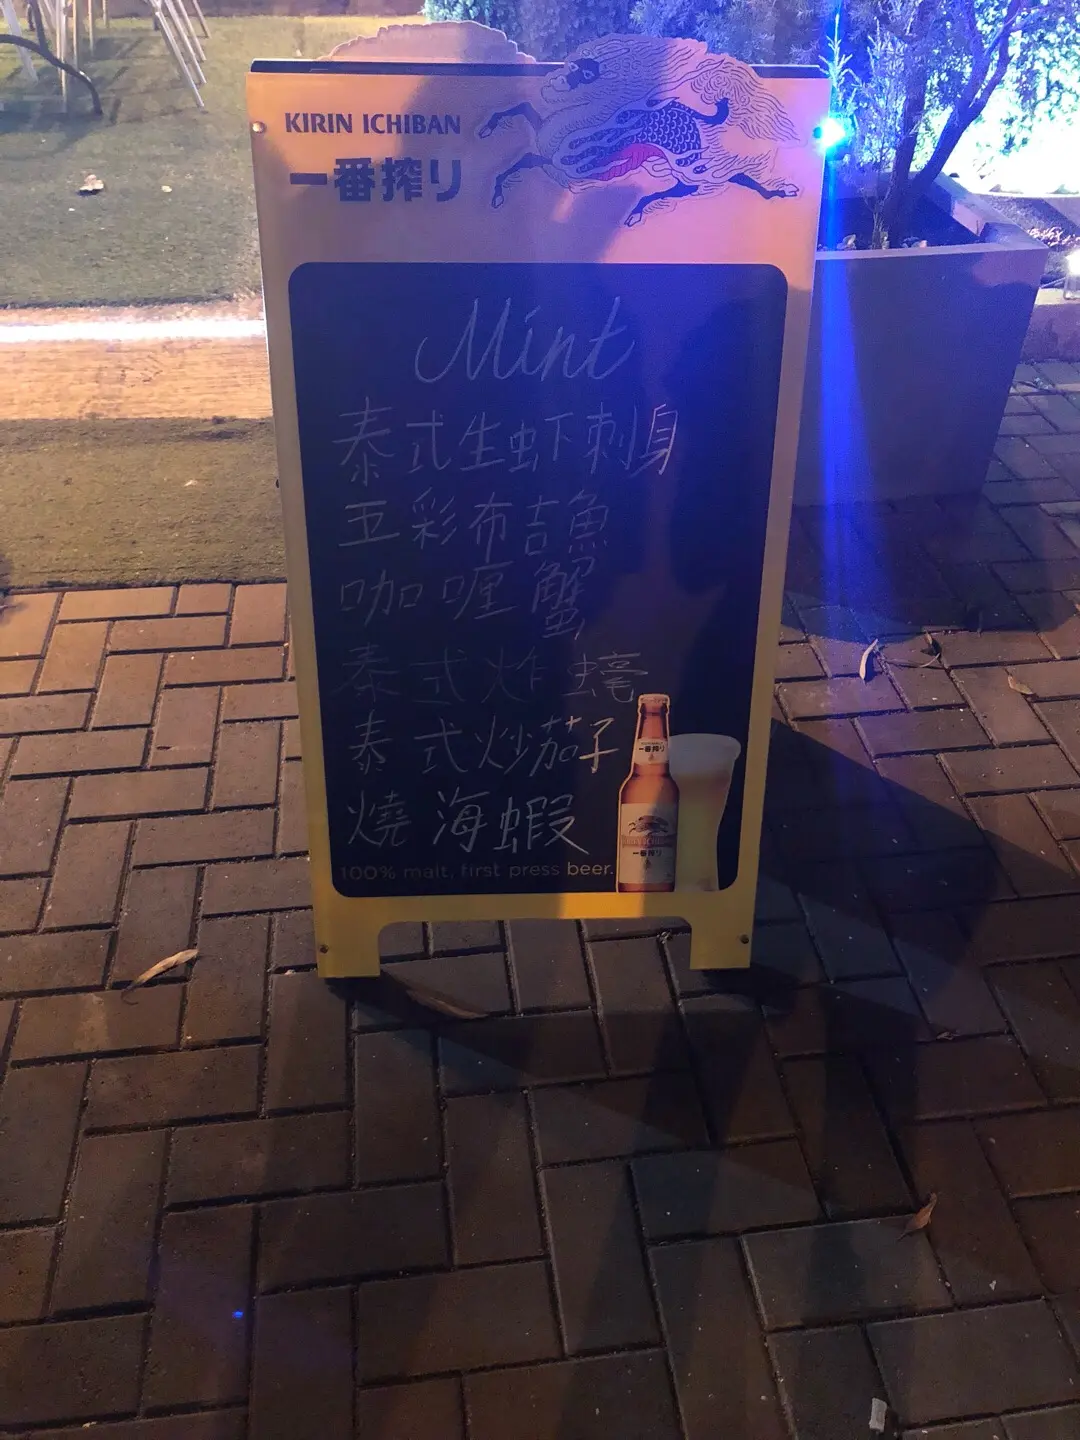 KIRIN ICHIBAN
一番搾り
Mint
泰式生虾刺身
五彩布吉魚
咖喱蟹
泰式炸蠔
泰式炒茄子
燒海蝦
100% malt, first press beer.
一番搾り
KIRIN ICHIBAN
一番搾り